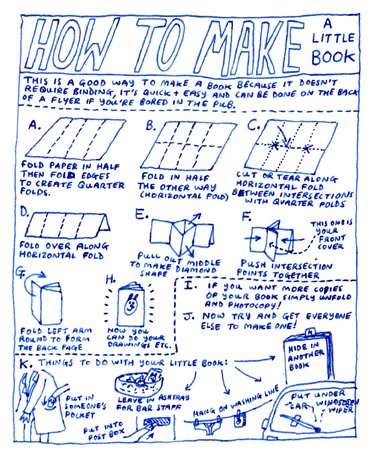 HOW TO MAKE
A LITTLE BOOK
THIS IS A GOOD WAY TO MAKE A BOOK BECAUSE IT DOESN'T
REQUIRE BINDING, IT'S QUICK + EASY AND CAN BE DONE ON THE BACK
OF A FLYER IF YOU'RE BORED IN THE PUB.
A.
FOLD PAPER IN HALF
THEN FOLD EDGES
TO CREATE QUARTER
FOLDS.
B.
FOLD IN HALF
THE OTHER WAY
(HORIZONTAL FOLD)
C.
CUT OR TEAR ALONG
HORIZONTAL FOLD
BETWEEN INTERSECTIONS
WITH QUARTER FOLDS
D.
FOLD OVER ALONG
HORIZONTAL FOLD
E.
PULL OUT MIDDLE
TO MAKE DIAMOND
SHAPE
F.
THIS ONE IS
YOUR
FRONT
COVER
PUSH INTERSECTION
POINTS TOGETHER
G.
FOLD LEFT ARM
ROUND TO FORM
THE BACK PAGE
H.
NOW YOU
CAN DO YOUR
DRAWINGS ETC.
I. IF YOU WANT MORE COPIES
OF YOUR BOOK SIMPLY UNFOLD
AND PHOTOCOPY!
J. NOW TRY AND GET EVERYONE
ELSE TO MAKE ONE!
K. THINGS TO DO WITH YOUR LITTLE BOOK:
PUT IN
SOMEONE'S
POCKET
LEAVE IN ASHTRAY
FOR BAR STAFF
PUT INTO
POST BOX
HANG ON WASHING LINE
HIDE IN
ANOTHER
BOOK
PUT UNDER
CAR WINDSCREEN
WIPER